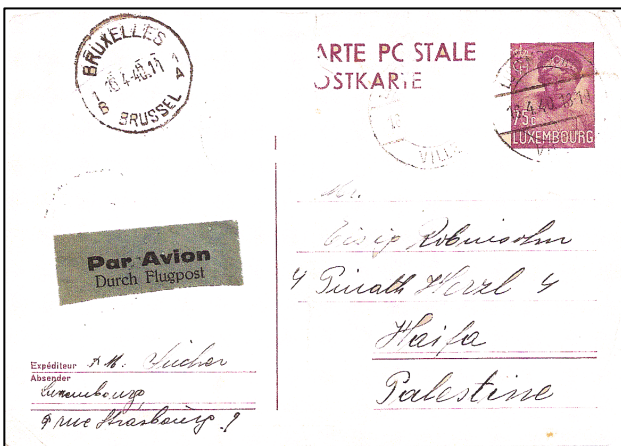 BRUXELLES
1B
1A
BRUSSEL
ARTE POSTALE
OSTKARTE
75c
LUXEMBOURG
VILLE
Par Avion
Durch Flugpost
Robinsohn
4 Pinath Herzl 4
Haifa
Palestine
Expéditeur
Absender
Luxembourg
9 rue Strasbourg 9